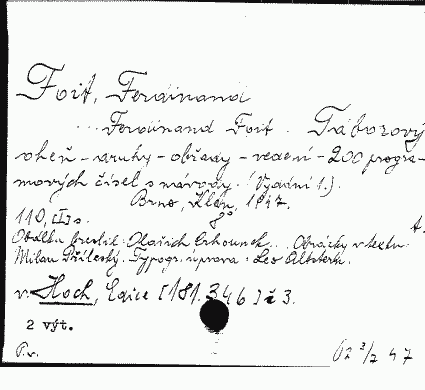 Foit, Ferdinand
... Ferdinand Foit. Táborový
oheň - druhy - obřady - vedení - 200 progra-
mových čísel s návody. (Vydání 1.).
Brno, Klán, 1947.
8°
110, [I] s.
Obálku kreslil: Oldřich ... Obrázky v textu:
Milan Přileský. Typogr. úprava: Leo
v. Hoch, Edice [181.346] č 3.
2 výt.
P.v.
62 3/7 47